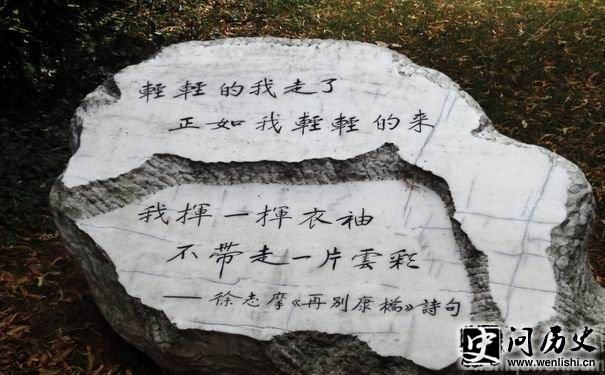 輕輕的我走了
正如我輕輕的来
我揮一揮衣袖
不帶走一片雲彩
——徐志摩《再别康橋》詩句
史 问历史
www.wenlishi.cn